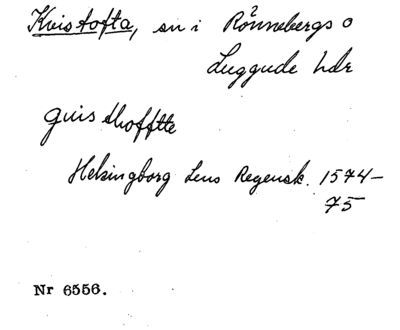 Kvistofta, sn i Rönnebergs o
Luggude hdr
quisthofftte
Helsingborg Lens Regensk. 1574–
75
Nr 6556.